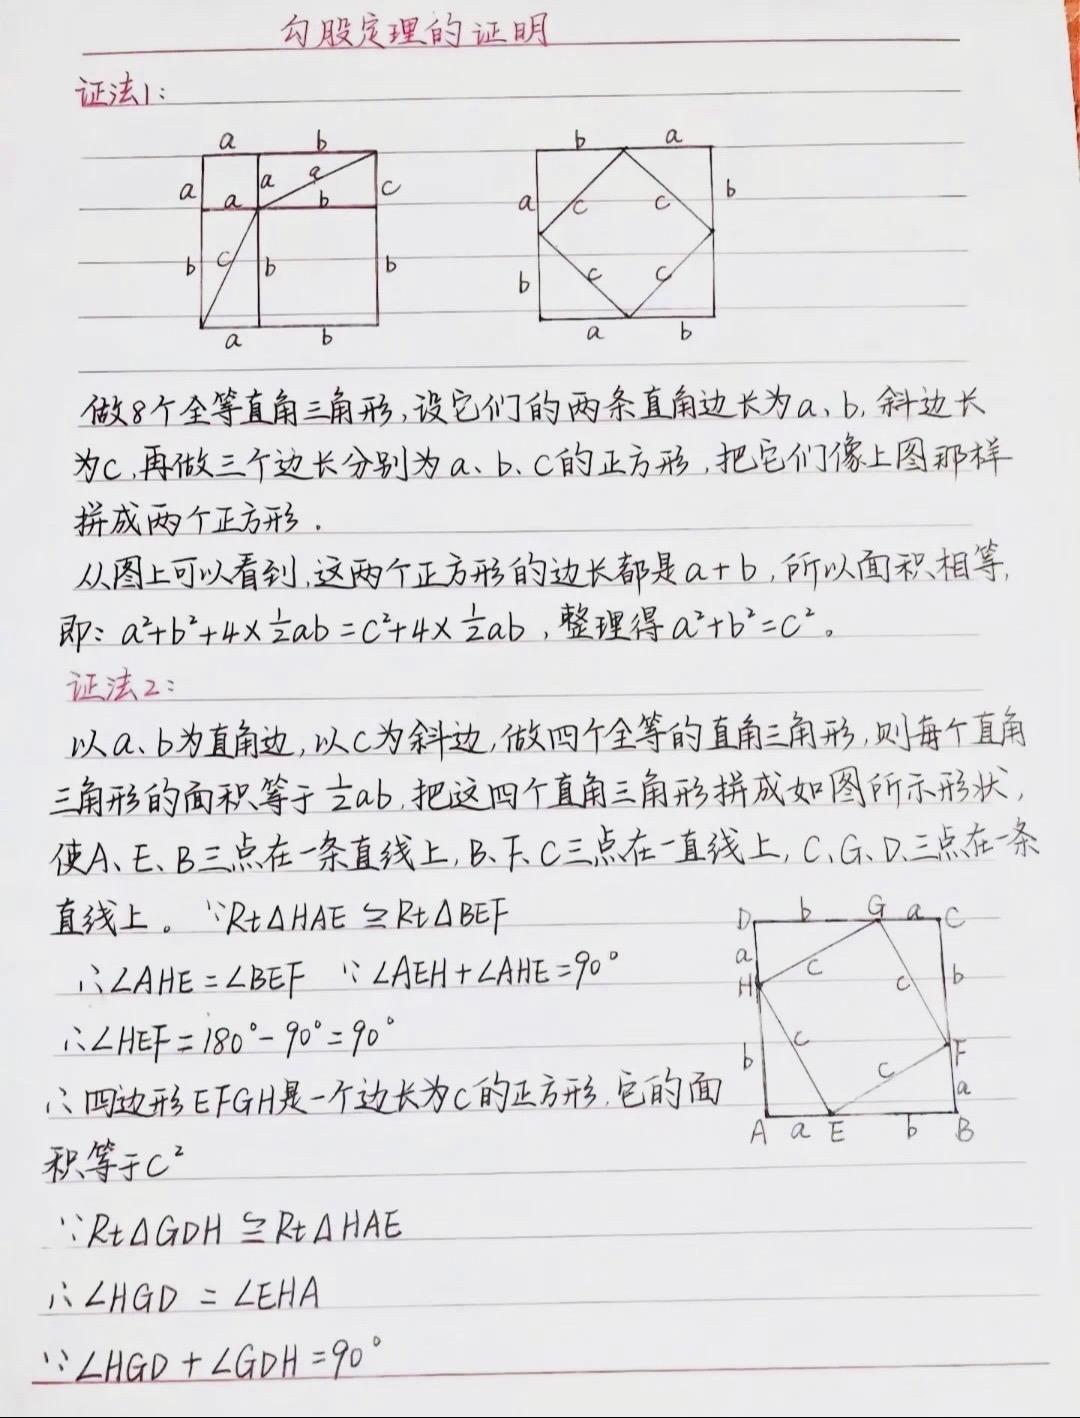 勾股定理的证明
证法1:
a b
a a a c
a b
b c b b
a b
b a
a c c b
b c c
a b
做8个全等直角三角形,设它们的两条直角边长为a、b,斜边长
为c,再做三个边长分别为a、b、c的正方形,把它们像上图那样
拼成两个正方形.
从图上可以看到,这两个正方形的边长都是a+b,所以面积相等,
即:a²+b²+4×½ab=c²+4×½ab,整理得a²+b²=c²。
证法2:
以a、b为直角边,以c为斜边,做四个全等的直角三角形,则每个直角
三角形的面积等于½ab,把这四个直角三角形拼成如图所示形状,
使A、E、B三点在一条直线上,B、F、C三点在一直线上,C、G、D、三点在一条
直线上。∵Rt△HAE≌Rt△BEF
∴∠AHE=∠BEF ∵∠AEH+∠AHE=90°
∴∠HEF=180°-90°=90°
∴四边形EFGH是一个边长为c的正方形,它的面
积等于c²
D b G a C
a c c b
H
b c c F
a
A a E b B
∵Rt△GDH≌Rt△HAE
∴∠HGD=∠EHA
∵∠HGD+∠GDH=90°